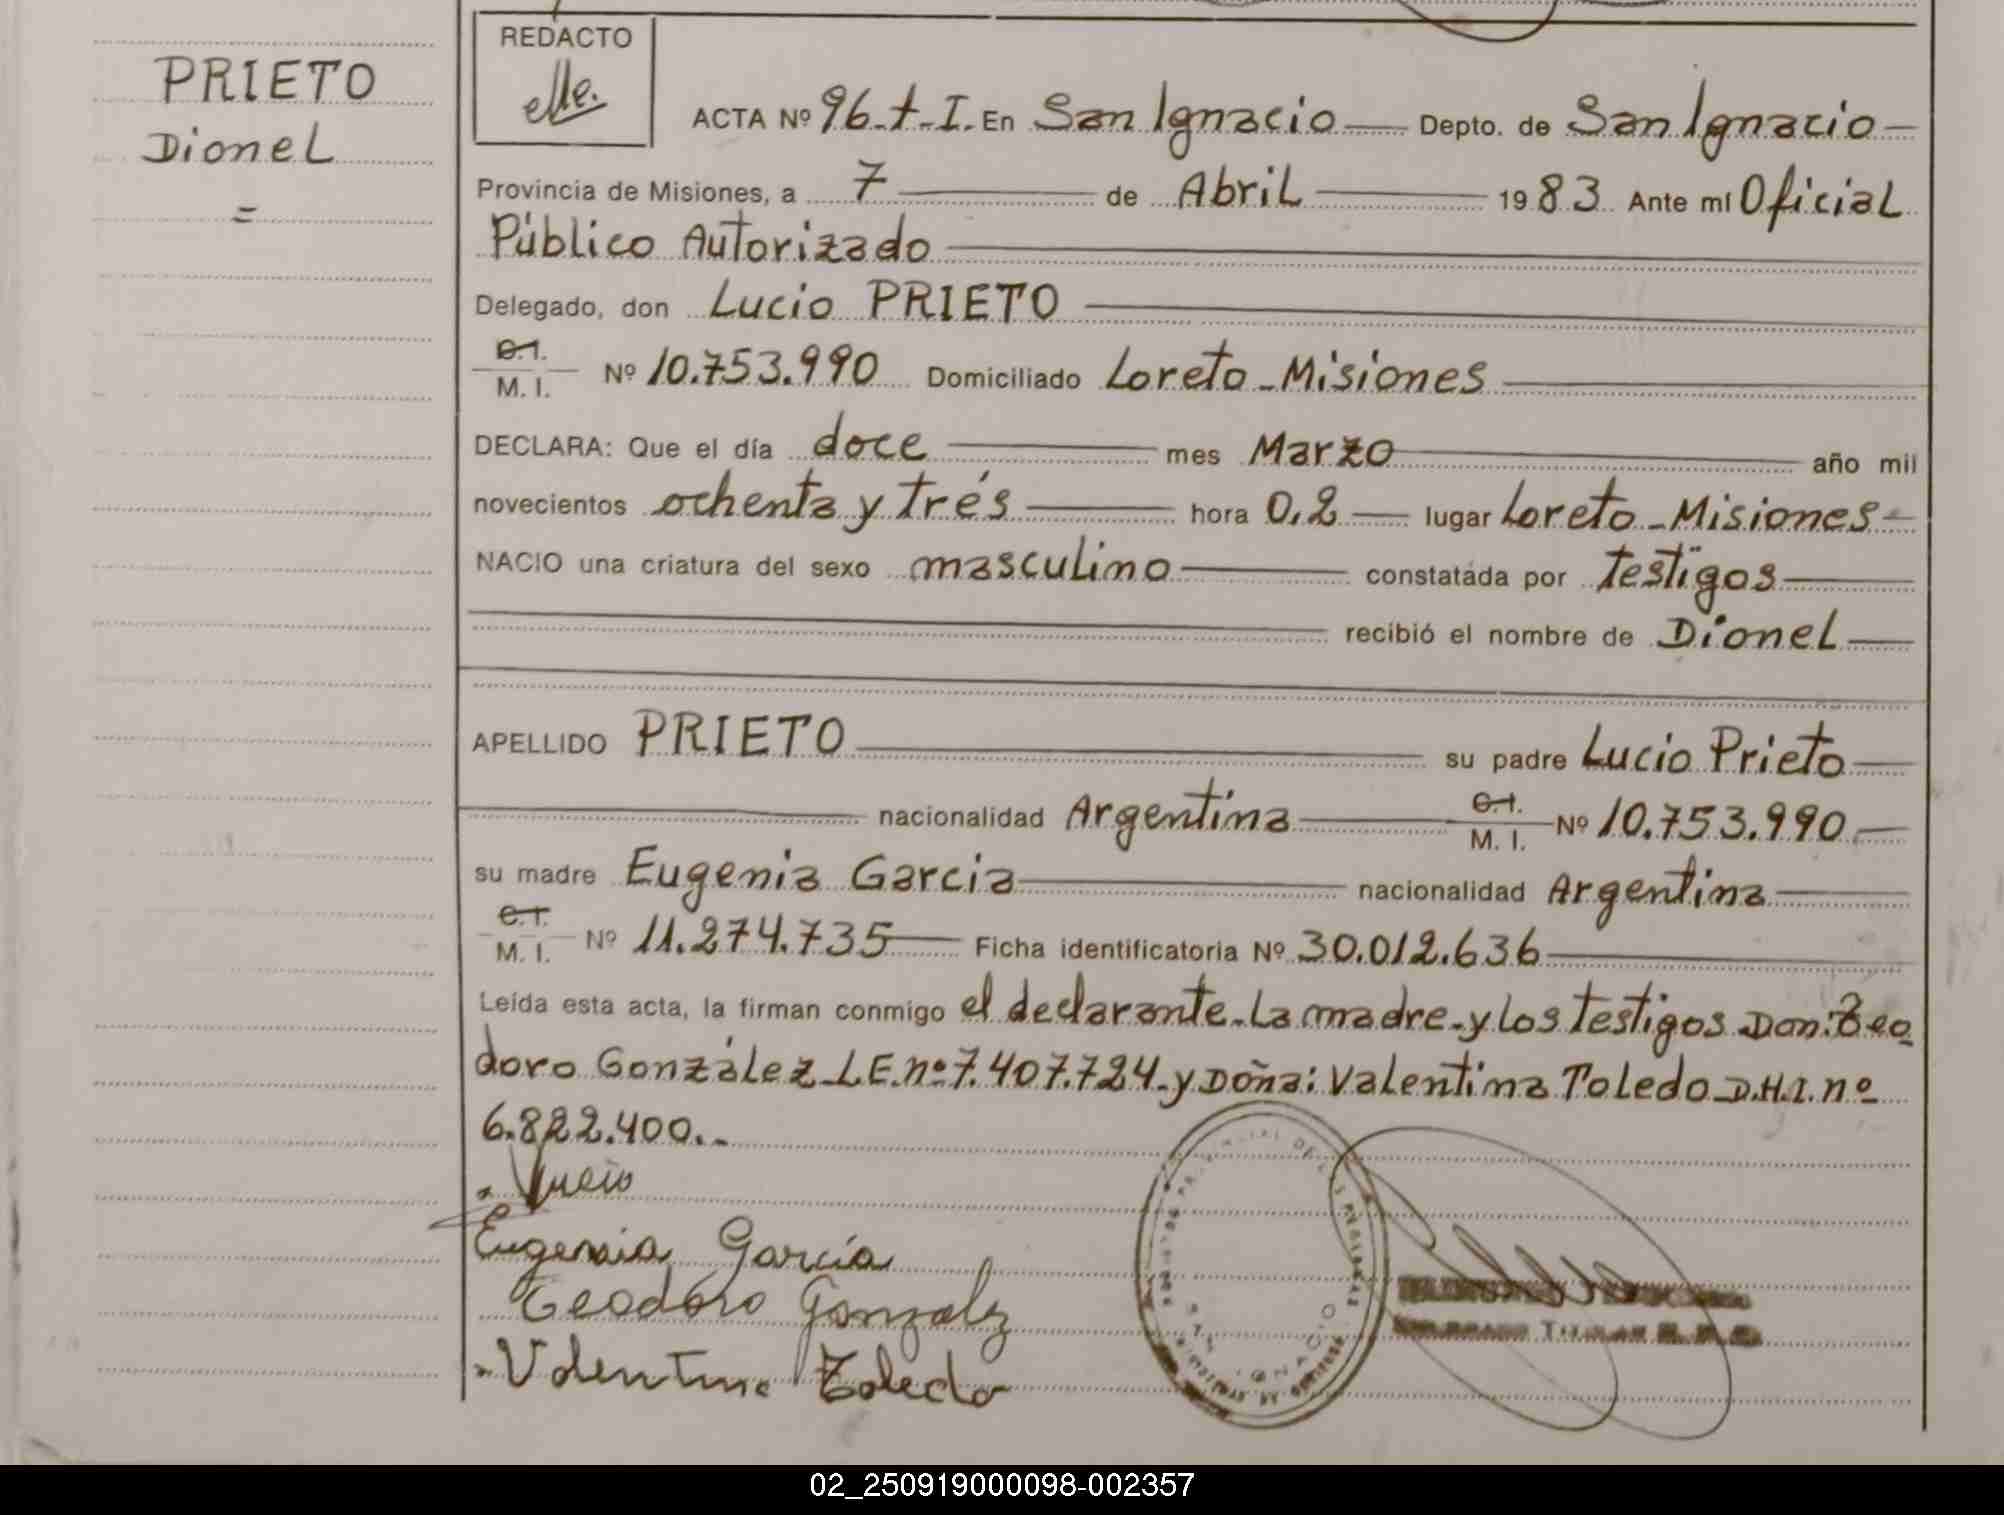 PRIETO
Dionel
=
REDACTO
ACTA Nº 96-t-I. En San Ignacio Depto. de San Ignacio
Provincia de Misiones, a 7 de Abril 1983 Ante mí Oficial
Público Autorizado
Delegado, don Lucio PRIETO
C.I.
M. I. Nº 10.753.990 Domiciliado Loreto - Misiones
DECLARA: Que el día doce mes Marzo año mil
novecientos ochenta y trés hora 0,2 lugar Loreto - Misiones
NACIO una criatura del sexo masculino constatada por testigos
recibió el nombre de Dionel
APELLIDO PRIETO su padre Lucio Prieto
nacionalidad Argentina C.I. M. I. Nº 10.753.990
su madre Eugenia Garcia nacionalidad Argentina
C.I.
M. I. Nº 11.274.735 Ficha identificatoria Nº 30.012.636
Leída esta acta, la firman conmigo el declarante - La madre - y los testigos Don: Teo
doro González L.E. nº 7.407.724 - y Doña: Valentina Toledo D.N.I. nº
6.822.400.-
Lucio
Eugenia García
Teodoro Gonzalz
Valentina Toledo
SAN IGNACIO
02_250919000098-002357